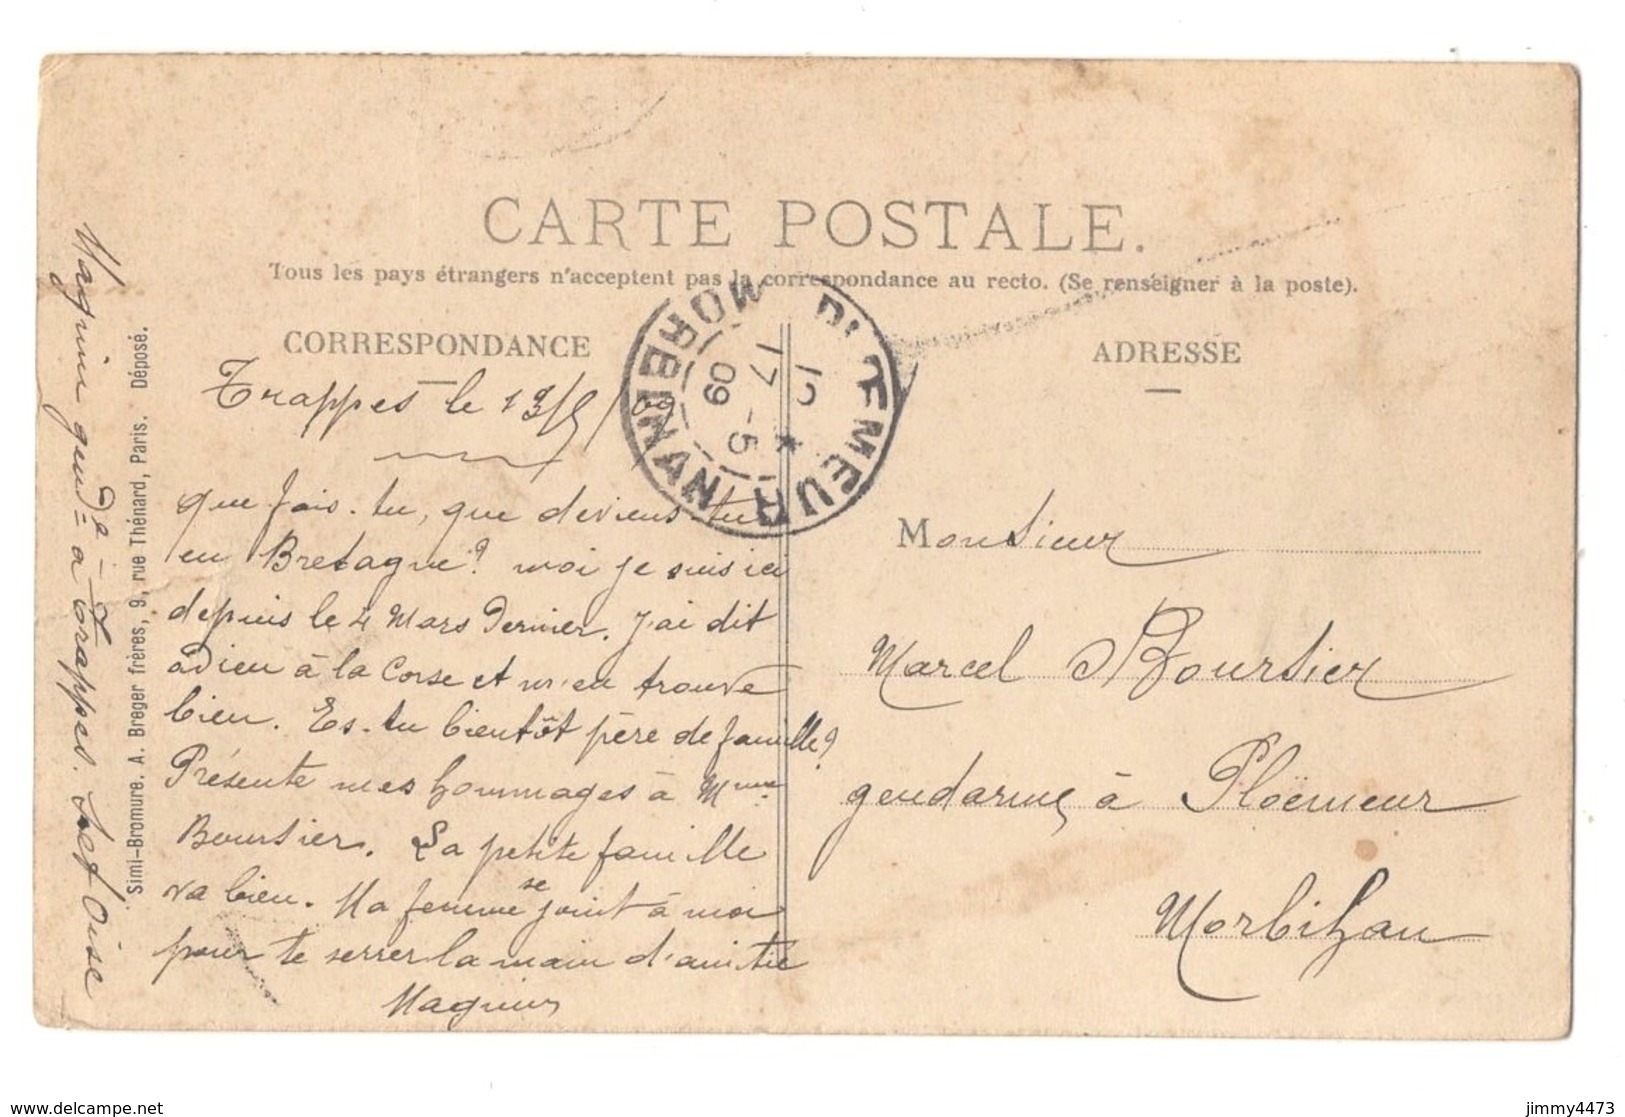 CARTE POSTALE.
Tous les pays étrangers n'acceptent pas la correspondance au recto. (Se renseigner à la poste).
CORRESPONDANCE
Trappes le 13/5/09
que fais-tu, que deviens-tu
en Bretagne? moi je suis ici
depuis le 4 Mars Dernier. J'ai dit
adieu à la Corse et m'en trouve
bien. Es-tu bientôt père de famille?
Présente mes hommages à Mme
Boursier. La petite famille
va bien. Ma femme se joint à moi
pour te serrer la main d'amitié
Magnin
Magnin gend=de à Trappes. S.et Oise
Simi-Bromure. A. Breger frères, 9, rue Thénard, Paris. Déposé.
PLŒMEUR
MORBIHAN
17 - 5
09
ADRESSE
Monsieur
Marcel Boursier
gendarme à Ploëmeur
Morbihan
delcampe.net
jimmy4473